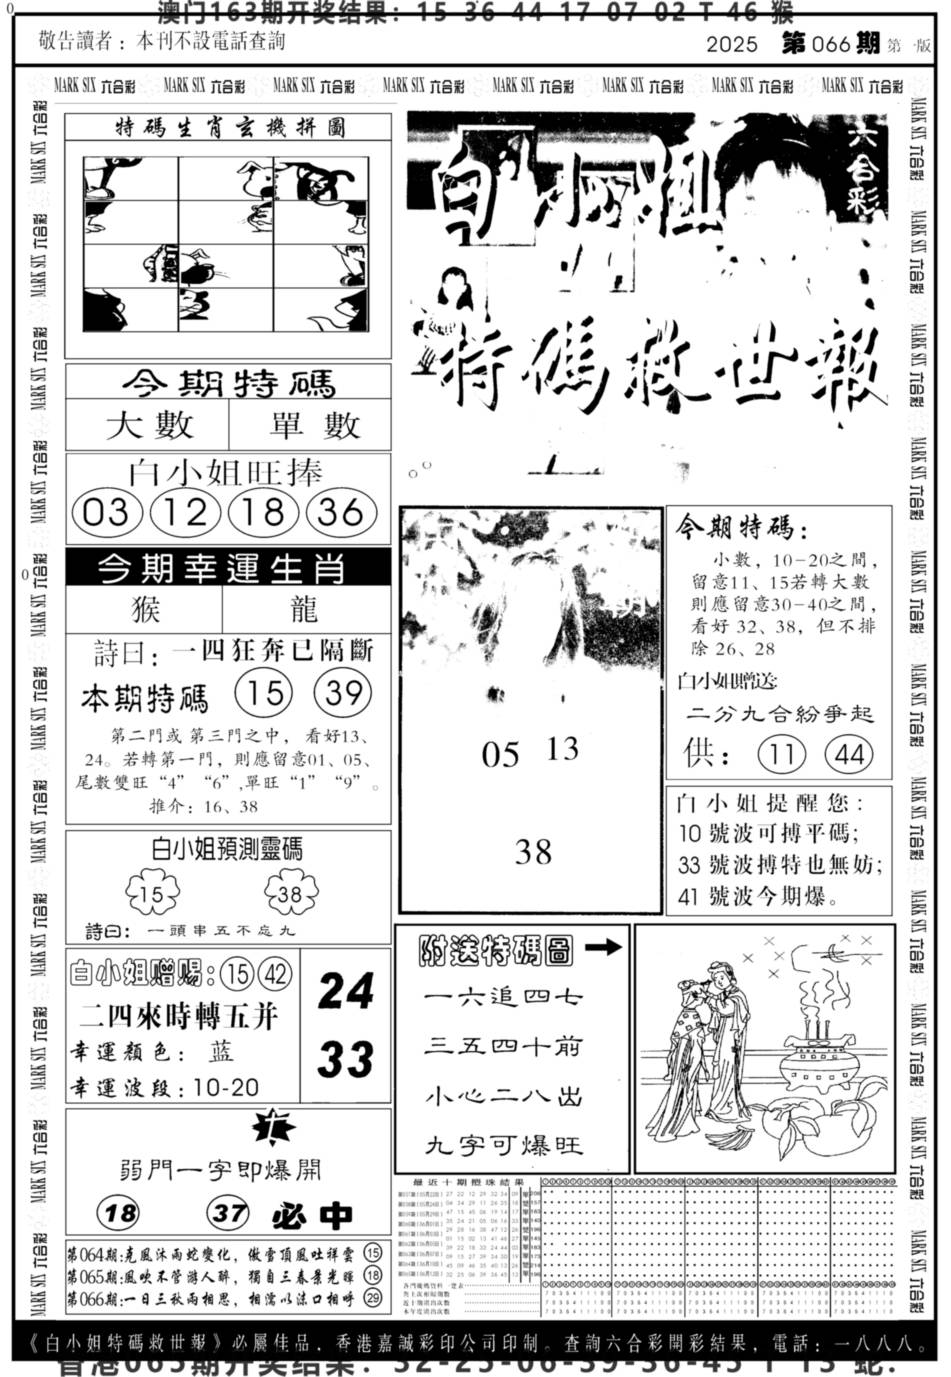 澳门163期开奖结果：15 36 44 17 07 02 T 46 猴
敬告讀者：本刊不設電話查詢
2025 第066期 第一版
MARK SIX 六合彩 MARK SIX 六合彩 MARK SIX 六合彩 MARK SIX 六合彩 MARK SIX 六合彩 MARK SIX 六合彩 MARK SIX 六合彩 MARK SIX 六合彩
特碼生肖玄機拼圖
六合彩
白小姐
特碼救世報
今期特碼
大數 單數
白小姐旺捧
03 12 18 36
今期幸運生肖
猴 龍
詩曰：一四狂奔已隔斷
本期特碼 15 39
第二門或第三門之中，看好13、
24。若轉第一門，則應留意01、05、
尾數雙旺“4”“6”,單旺“1”“9”。
推介：16、38
白小姐預測靈碼
15 38
詩曰：一頭串五不忘九
白小姐赠赐：15 42
二四來時轉五并
幸運顏色：蓝
幸運波段：10-20
24
33
弱門一字即爆開
18 37 必中
第064期:克風沐雨蛇變化，傲雪頂風吐祥雲 15
第065期:風吹不管游人醉，獨自三春景光暉 18
第066期:一日三秋兩相思，相濡以沫口相呼 29
05 13
38
今期特碼：
小數，10-20之間，
留意11、15若轉大數
則應留意30-40之間，
看好 32、38，但不排
除 26、28
白小姐贈送:
二分九合紛爭起
供：11 44
白小姐提醒您：
10 號波可搏平碼;
33 號波搏特也無妨;
41 號波今期爆。
附送特碼圖
一六追四七
三五四十前
小心二八出
九字可爆旺
最近十期攪珠結果
《白小姐特碼救世報》必屬佳品，香港嘉誠彩印公司印制。查詢六合彩開彩結果，電話：一八八八。
香港065期开奖结果：32-25-06-39-36-45 T 13 蛇.